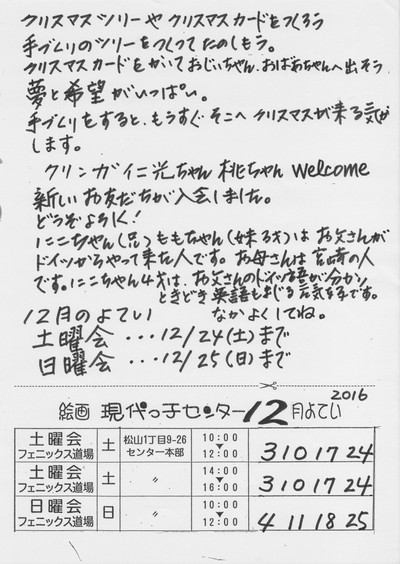 クリスマスツリーやクリスマスカードをつくろう
手づくりのツリーをつくってたのしもう。
クリスマスカードをかいておじいちゃん、おばあちゃんへ出そう
夢と希望がいっぱい。
手づくりをすると、もうすぐそこへクリスマスが来る気が
します。
クリンガイ仁光ちゃん 桃ちゃん Welcome
新しいお友だちが入会しました。
どうぞよろしく!
にこちゃん(兄)ももちゃん(妹3才)はお父さんが
ドイツからやって来た人です。お母さんは宮崎の人
です。にこちゃん4才は、お父さんのドイツ語が分かり
ときどき英語もまじる元気な子です。
12月のよてい なかよくしてね。
土曜会・・・12/24(土)まで
日曜会・・・12/25(日)まで
2016
絵画 現代っ子センター12月よてい
土曜会 フェニックス道場 土 松山1丁目9-26 センター本部 10:00 ▼ 12:00 3 10 17 24
土曜会 フェニックス道場 土 〃 14:00 ▼ 16:00 3 10 17 24
日曜会 フェニックス道場 日 〃 10:00 ▼ 12:00 4 11 18 25